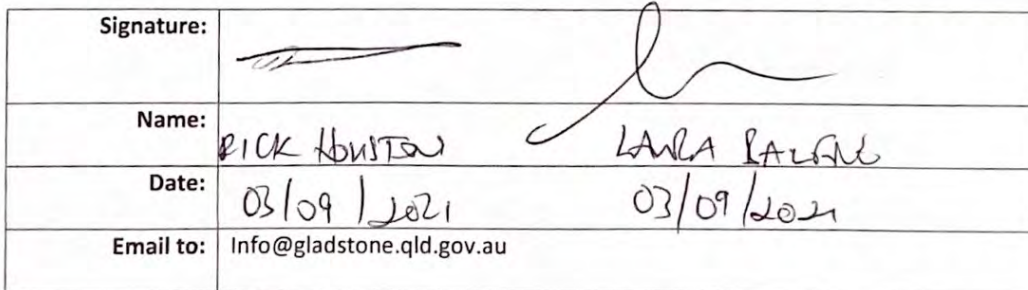 Signature:
Name: RICK HOUSTON LAURA
Date: 03/09/2021 03/09/2021
Email to: Info@gladstone.qld.gov.au